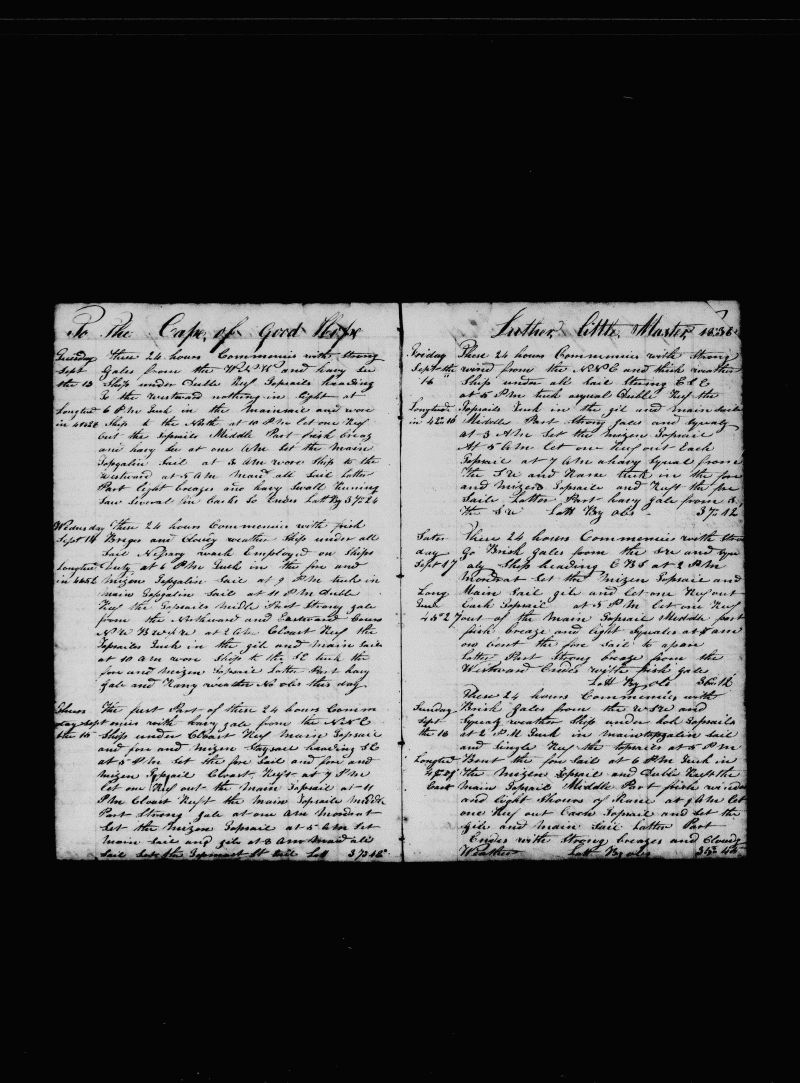 To The Cape of Good Hope
Tuesday These 24 hours Commencis with Strong
Sept Gales from the WNW and havy Sea
the 13 Ship under Duble Reef Topsails heading
To the Westward nothing in Sight at
Longtud 6 P M Tuck in the mainsail and wore
in Ship to the North at 10 P M let one Reef
out the topsails Middle Part fresh breaz
and havy Sea at one A M Set the main
Topgalin Sail at 3 A M wore Ship to the
Westward at 5 A M made all Sail Latter
Part light Breazes and havy Swell Runing
Saw Several fin Backs So Endes Latt By 37=24
Wednsday These 24 hours Commencis with fresh
Sept 14 Brezes and Cloudy weather Ship under all
Sail Nesary work Employed on Ships
Longtud Duty at 6 P M Tuck in the fore and
in mizen Topgalin Sail at 9 P M tuck in
main Topgalin Sail at 11 P M Duble
Reef the Topsails Midle Part Strong gale
from the Northward and Eastward Cours
at 2 A M Closart Reef the
Topsails Tuck in the gib and main Saile
at 10 A M wore Ship to the SE tuck the
fore and mizen Topsail Latter Part havy
gale and Rany weather No obs this day
Thurs The first Part of these 24 hours Comm
day Sept encis with havy gale from the NNE
the 15 Ship under Closart Reef Maing Topsail
and fore and mizen Staysail heading SE
at 5 P M Set the fore Sail and fore and
mizen Topsail Closart Reeft at 7 P M
let one Reef out the Main Topsail at 11
P M Closart Reeft the Main Topsails Middle
Part Strong gale at one A M Modrat
Set the Mizen Topsail at 5 A M Set
Main Sail and gib at 8 A M Mad all
Sail Set the Latt 37=48
Luther little Master 1836
7
Friday These 24 hours Commencis with Strong
Sept the wind from the NNE and thick weather
16 Ship under all Sail Stering ESE
at 5 P M tuck Duble Reef the
Longtude Topsails Tuck in the gib and main Sail
in Middle Part Strong gales and Squaly
at 3 A M Set the mizen Topsail
At 5 A M let one Reef out Each
Topsail at 7 A M a havy Squal from
the and Rane tuck in the fore
and Mizen Topsail and Reeft the fore
Saile Latter Part havy gale from
the Latt By obs - 37=12
Satur These 24 hours Commencis with Stron
day go Brisk Gales from the and Squ
Sept 17 aly Ship heading E B S at 2 P M
Modrat Set the Mizen Topsail and
Long Main Sail gib and let one Reef out
Tude Each Topsail at 5 P M let one Reef
45=27 out of the Main Topsail Middle part
fresh breaze and light Squales at 8 A M
one bout the fore Sail to apair
latter Part Strong breaze from the
Westward Endes with fresh gales
Latt By obs 36=16
These 24 hours Commencis with
Sunday Brisk gales from the WSW and
Sept Squaly weather Ship under hol Topsails
the 18 at 2 P M Tuck in main topgalin Sail
and Single Reef the topsails at 5 P M
Longtud Bout the fore Sail at 6 P M Tuck in
the Mizen Topsail and Duble Reeft the
East Main Topsail Middle Part fresh winds
and light Shours of Rane at 7 A M let
one Reef out Each Topsail and Set the
gib and Main Sail Latter Part
Endes with Strong breazes and Cloudy
Weather Latt By obs